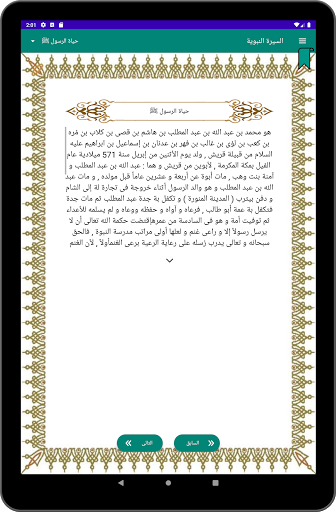 2:01
السيرة النبوية
حياة الرسول ﷺ
حياة الرسول ﷺ
هو محمد بن عبد الله بن عبد المطلب بن هاشم بن قصي بن كلاب بن مُره
بن كعب بن لؤى بن غالب بن فهر بن عدنان بن إسماعيل بن ابراهيم عليه
السلام من قبيلة قريش , ولد يوم الأثنين من إبريل سنة 571 ميلادية عام
الفيل بمكة المكرمة , لأبوين من قريش و هما : عبد الله بن عبد المطلب و
آمنة بنت وهب , مات أبوة عن أربعة و عشرين عاماً قبل مولده , و مات عبد
الله بن عبد المطلب و هو والد الرسول أثناء خروجة فى تجارة له إلى الشام
و دفن بيثرب ( المدينة المنورة ) و تكفل بة جدة عبد المطلب ثم مات جدة
فتكفل بة عمة أبو طالب , فرعاه و أواه و حفظه ووعاه و لم يسلمه للأعداء
ثم توفيت أمة و هو فى السادسة من عمره|فتضت حكمة الله تعالى أن لا
يرسل رسولاً إلا و راعى غنم و لعلها أولى مراتب مدرسة النبوة , فالحق
سبحانه و تعالى يدرب رُسله على رعاية الرعية برعى الغنمأولاً , لأن الغنم
السابق
التالى